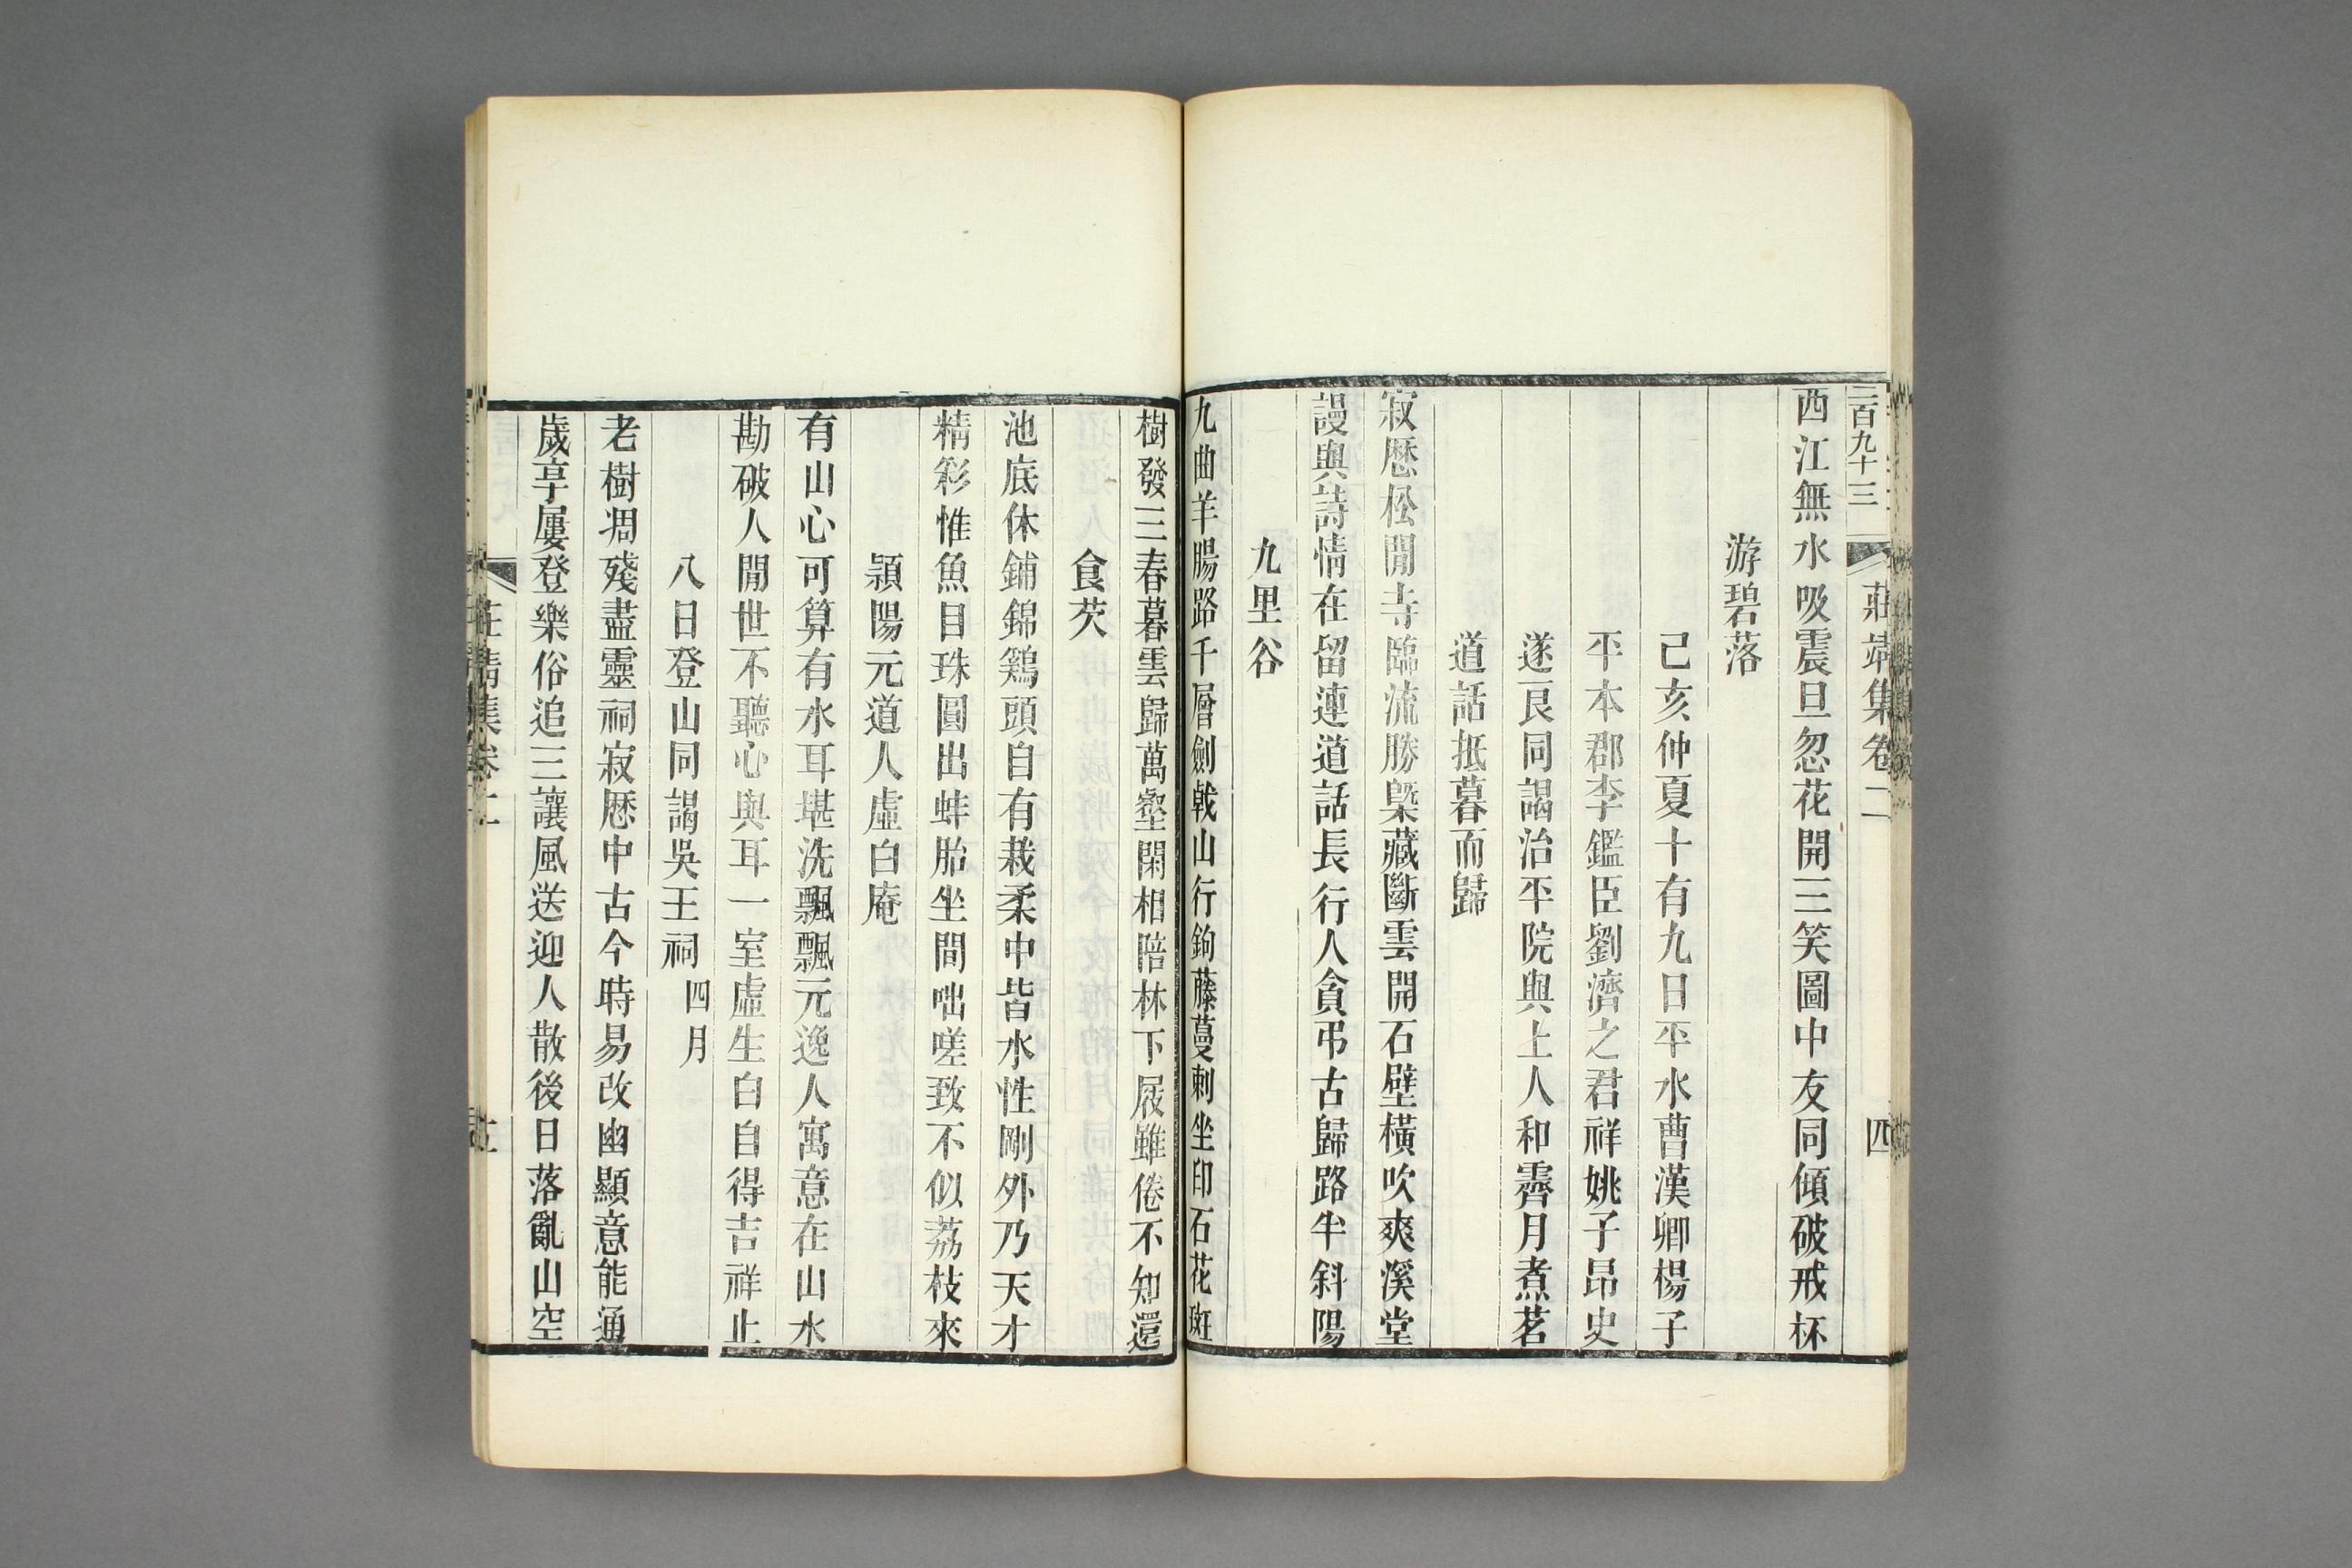 二百九十三
莊靖集卷二
四
西江無水吸震旦忽花開三笑圖中友同傾破戒杯
游碧落
己亥仲夏十有九日平水曹漢卿楊子
平本郡李鑑臣劉濟之君祥姚子昂史
遂良同謁治平院與上人和霽月煮茗
道話抵暮而歸
寂歷松間寺臨流勝槩藏斷雲開石壁橫吹爽溪堂
謾與詩情在留連道話長行人貪弔古歸路半斜陽
九里谷
九曲羊腸路千層劍戟山行鉤藤蔓刺坐印石花斑
樹發三春暮雲歸萬壑閑相陪林下屐雖倦不知還
食芡
池底休鋪錦鷄頭自有栽柔中皆水性剛外乃天才
精彩惟魚目珠圓出蚌胎坐間咄嗟致不似荔枝來
潁陽元道人虛白庵
有山心可算有水耳堪洗飄飄元逸人寓意在山水
勘破人閒世不聽心與耳一室虛生白自得吉祥止
八日登山同謁吳王祠四月
老樹凋殘盡靈祠寂歷中古今時易改幽顯意能通
歲享屢登樂俗追三讓風送迎人散後日落亂山空
莊靖集卷二
五